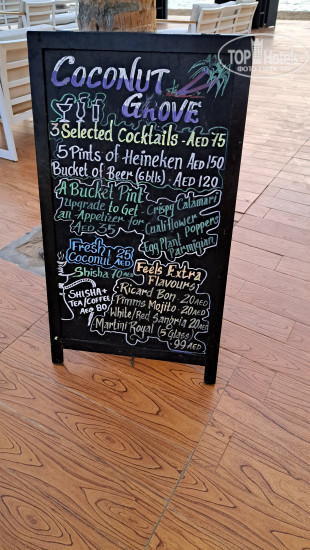 COCONUT
GROVE
3 Selected Cocktails - AED 75
5 Pints of Heineken AED 150
Bucket of Beer (6btls) - AED 120
A Bucket Pint
Upgrade to Get
an Appetizer for
AED 35
Crispy Calamari
Cauliflower Poppers
Egg Plant Parmigian
Fresh 25
Coconut AED
Shisha 70 AED
SHISHA +
TEA/COFFEE
AED 80
Feels Extra
Flavours
Ricard Bon - 20 AED
Pimms Mojito - 20 AED
White/Red Sangria 20 AED
Martini Royal (5 Glass)
- 99 AED
TopHotels
ФОТО